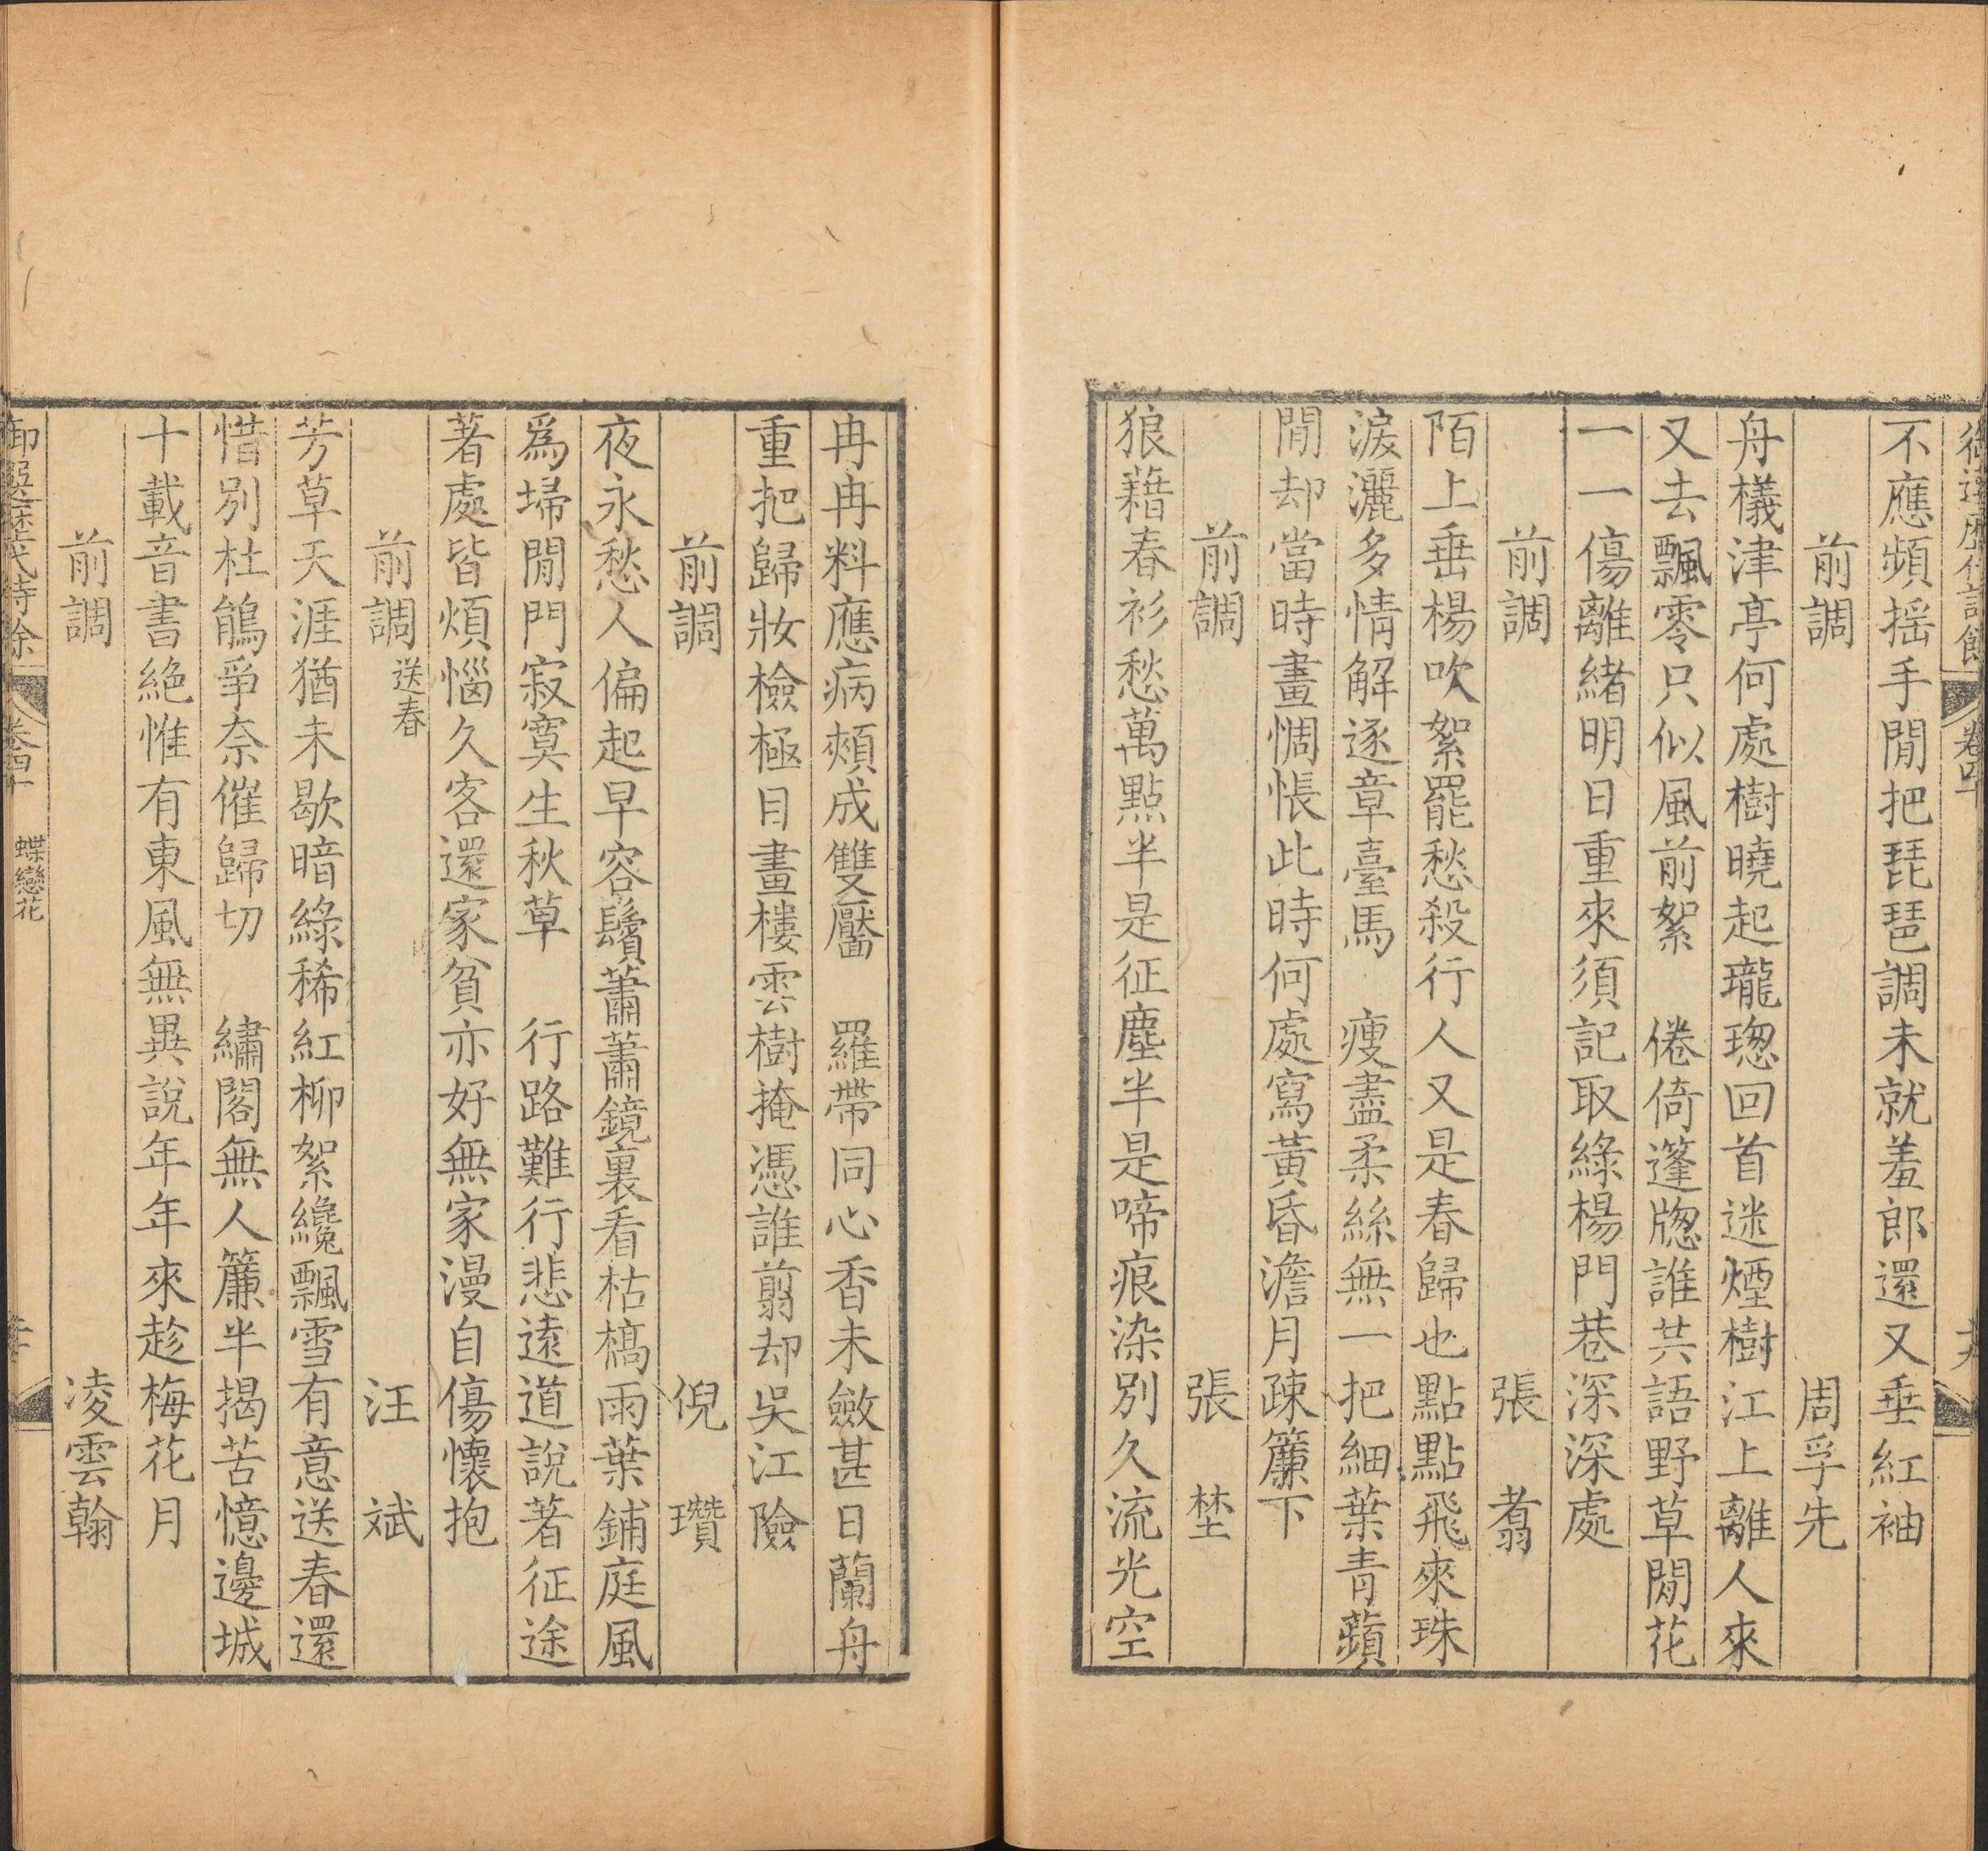 不應頻搖手閒把琵琶調未就羞郎還又垂紅袖
前調 周孚先
舟檥津亭何處樹曉起瓏璁回首迷煙樹江上離人來
又去飄零只似風前絮 倦倚篷牕誰共語野草閒花
一一傷離緒明日重來須記取綠楊門巷深深處
前調 張翥
陌上垂楊吹絮罷愁殺行人又是春歸也點點飛來珠
淚灑多情解逐章臺馬 瘦盡柔絲無一把細葉青蘋
閒却當時畫惆悵此時何處寫黃昏澹月疎簾下
前調 張埜
狼藉春衫愁萬點半是征塵半是啼痕染別久流光空
冉冉料應病頰成雙靨 羅帶同心香未斂甚日蘭舟
重把歸妝檢極目畫樓雲樹掩憑誰翦却吳江險
前調 倪瓚
夜永愁人偏起早容鬢蕭蕭鏡裏看枯槁雨葉鋪庭風
爲埽閒門寂寞生秋草 行路難行悲遠道說著征途
著處皆煩惱久客還家貧亦好無家漫自傷懷抱
前調 送春 汪斌
芳草天涯猶未歇暗綠稀紅柳絮纔飄雪有意送春還
惜別杜鵑爭奈催歸切 繡閣無人簾半揭苦憶邊城
十載音書絶惟有東風無異說年年來趁梅花月
前調 凌雲翰
卷四十 蝶戀花